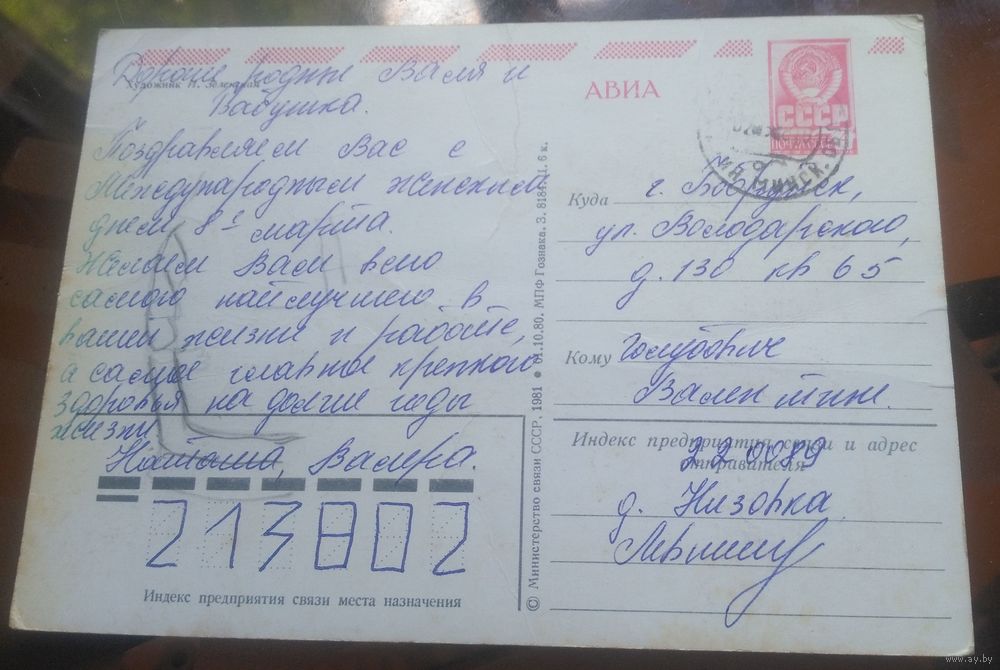 Художник И. Зеленцова
Дорогие родные Валя и
Бабушка.
Поздравляем Вас с
Международным женским
днем 8е марта.
Желаем Вам всего
самого наилучшего в
вашей жизни и работе,
а самое главное крепкого
здоровья на долгие годы
жизни
Наташа, Валера.
213802
Индекс предприятия связи места назначения
© Министерство связи СССР, 1981 ● 01.10.80. МПФ Гознака. З. 8184. Ц. 6 к.
АВИА
СССР
ПОЧТА
МИНСК
Куда г. Бобруйск,
ул. Володарского,
д. 130 кв 65
Кому Голубович
Валентине.
Индекс предприятия связи и адрес
отправителя
220089
д. Низовка
www.ay.by